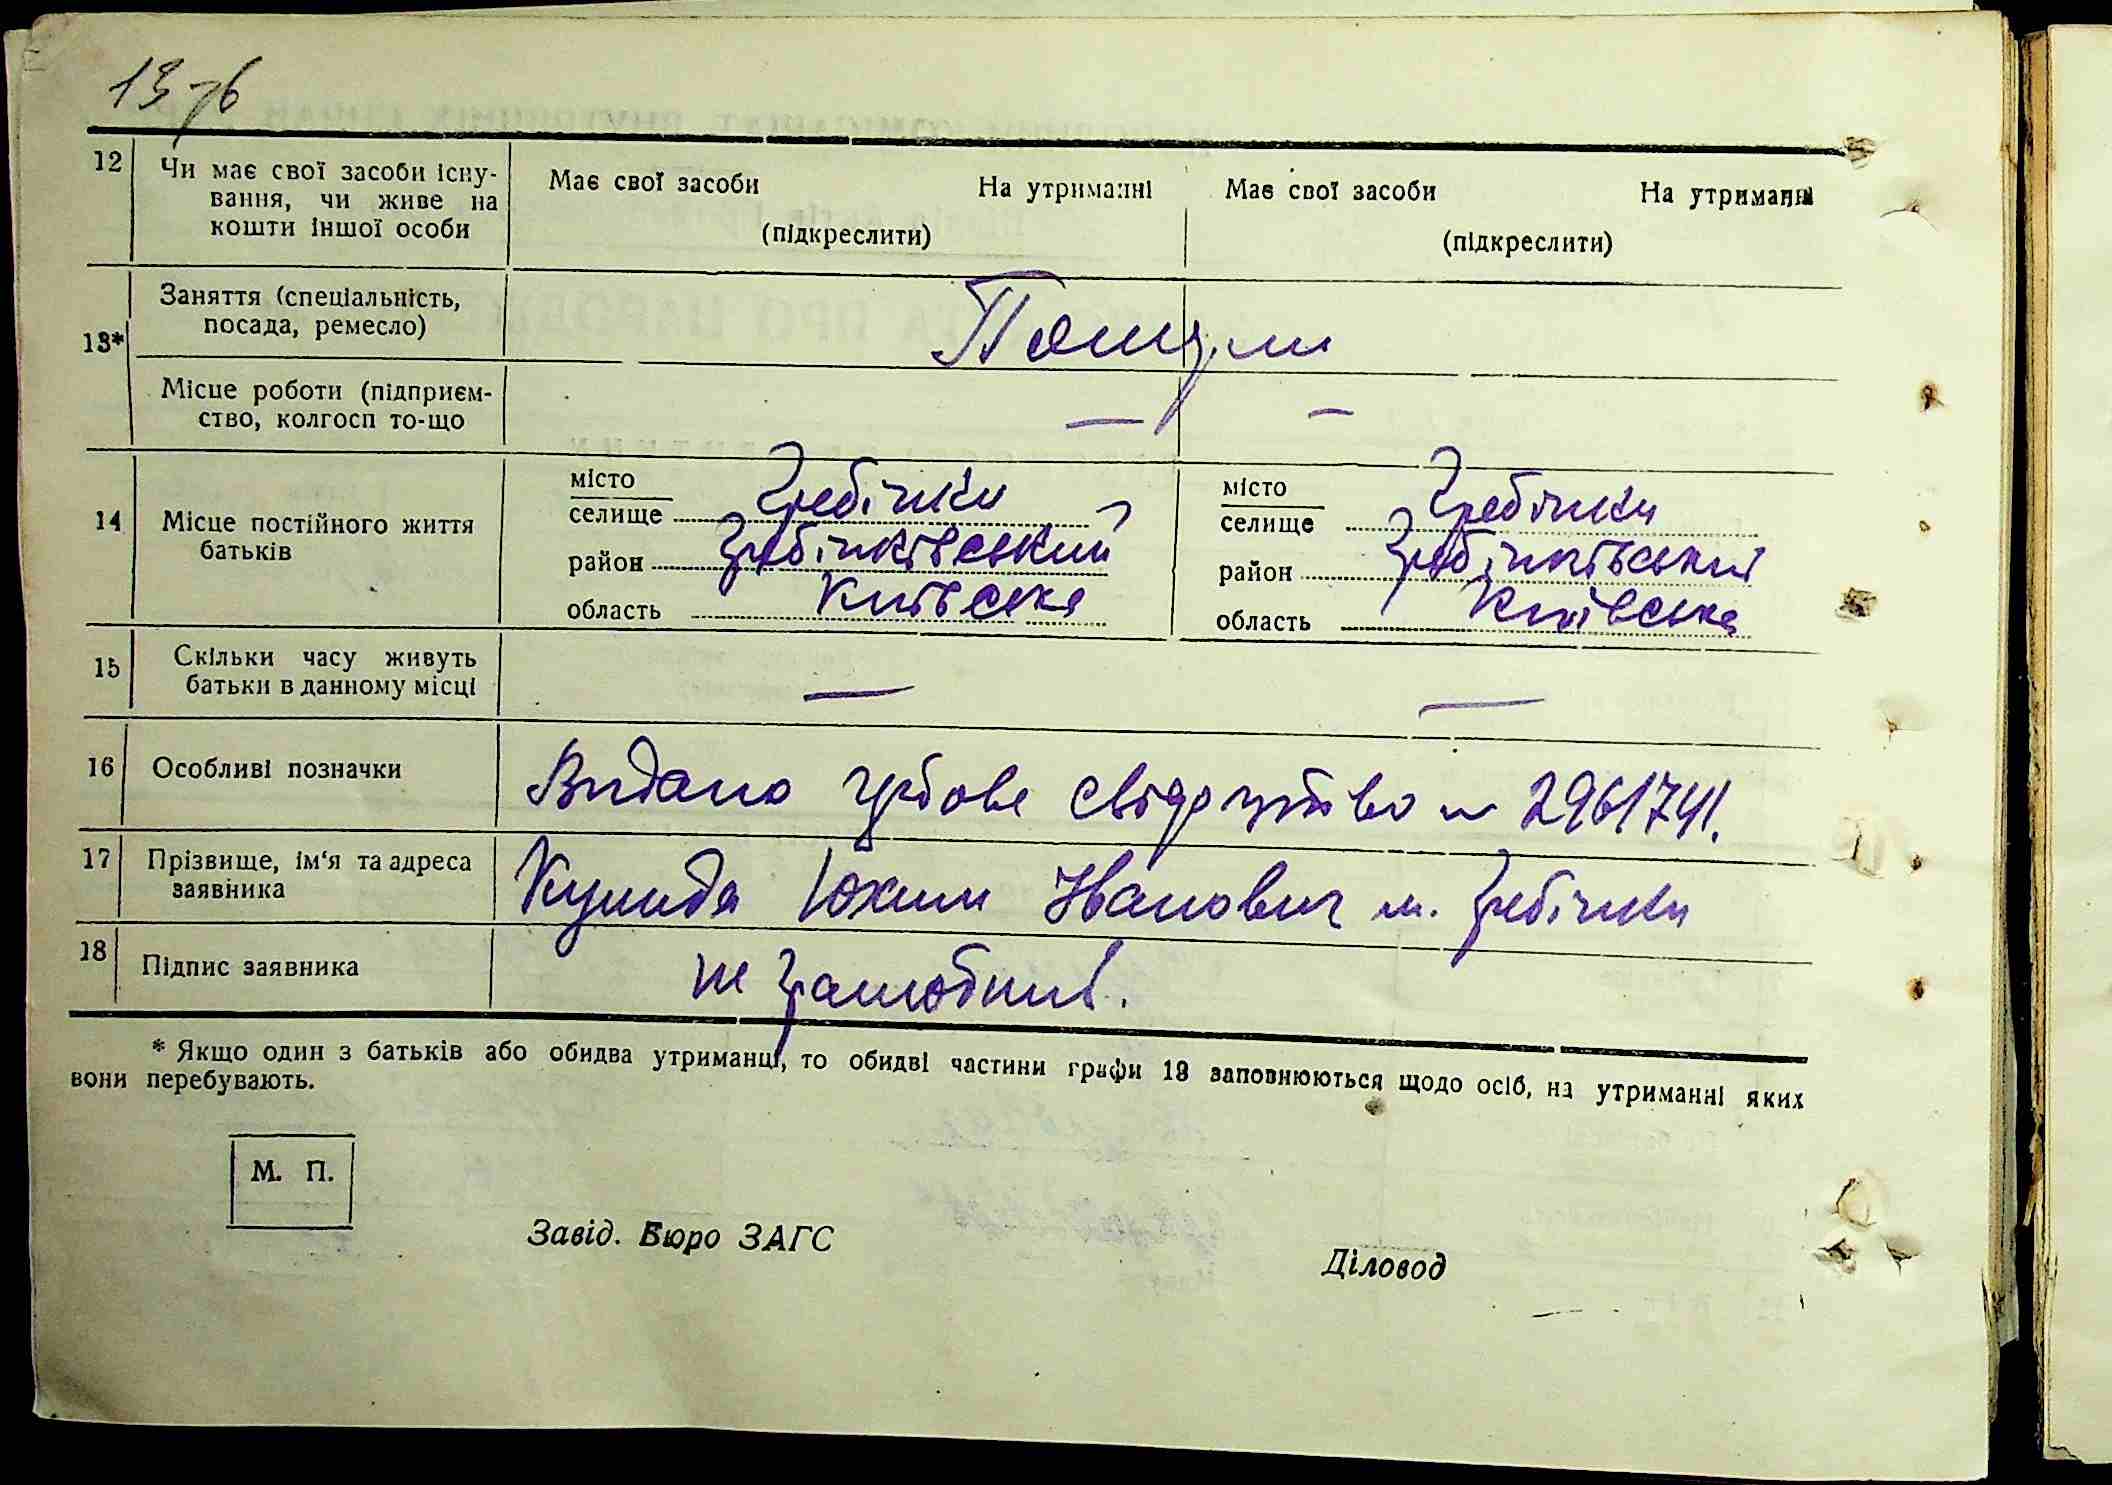 13 зб
12 Чи має свої засоби існу- Має свої засоби На утриманні Має свої засоби На утриманні
вання, чи живе на
кошти іншої особи (підкреслити) (підкреслити)
Заняття (спеціальність,
13* посада, ремесло) Помер.ли
Місце роботи (підприєм- — —
ство, колгосп то-що
14 Місце постійного життя батьків
місто
селище Гребінки
район Гребінківський
область Київська
місто
селище Гребінки
район Гребінківський
область Київська
15 Скільки часу живуть — —
батьки в данному місці
16 Особливі позначки Видано свідоцтво № 2961741.
17 Прізвище, ім'я та адреса Юхим Іванович м. Гребінки
заявника
18 Підпис заявника не
* Якщо один з батьків або обидва утриманці, то обидві частини графи 13 заповнюються щодо осіб, на утриманні яких
вони перебувають.
М. П.
Завід. Бюро ЗАГС
Діловод